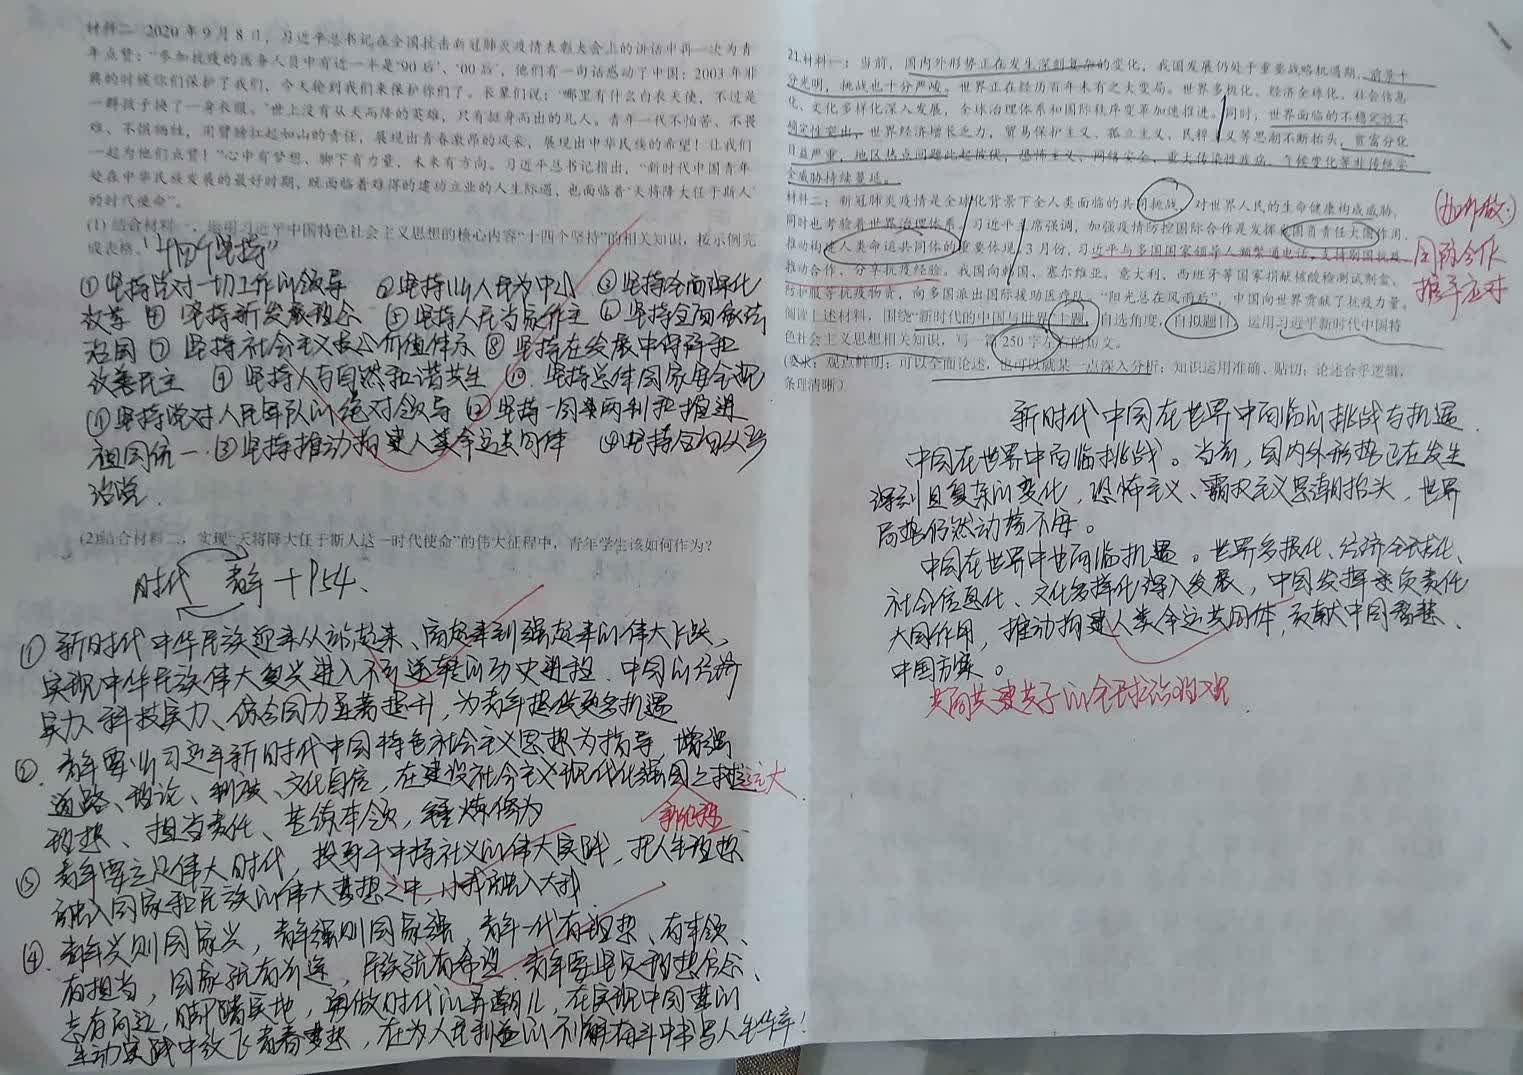 材料二 2020年9月8日，习近平总书记在全国抗击新冠肺炎疫情表彰大会上的讲话中再一次为青
年点赞：“参加抗疫的医务人员中有近一半是‘90后’、‘00后’，他们有一句话感动了中国：2003年非
典的时候你们保护了我们，今天轮到我们来保护你们了。长辈们说：‘哪里有什么白衣天使，不过是
一群孩子换了一身衣服。’世上没有从天而降的英雄，只有挺身而出的凡人。青年一代不怕苦、不畏
难、不惧牺牲，用臂膀扛起如山的责任，展现出青春激昂的风采，展现出中华民族的希望！让我们
一起为他们点赞！”心中有梦想、脚下有力量，未来有方向。习近平总书记指出，“新时代中国青年
处在中华民族发展的最好时期，既面临着难得的建功立业的人生际遇，也面临着‘天将降大任于斯人’
的时代使命”。
(1) 结合材料一，运用习近平中国特色社会主义思想的核心内容“十四个坚持”的相关知识，按示例完
成表格。
“十四个坚持”
①坚持党对一切工作的领导 ②坚持以人民为中心 ③坚持全面深化
改革 ④ 坚持新发展理念 ⑤坚持人民当家作主 ⑥坚持全面依法
治国 ⑦ 坚持社会主义核心价值体系 ⑧坚持在发展中保障和
改善民主 ⑨坚持人与自然和谐共生 ⑩坚持总体国家安全观
⑪坚持党对人民军队的绝对领导 ⑫坚持一国两制和推进
祖国统一 ⑬坚持推动构建人类命运共同体 ⑭坚持全面从严
治党.
(2)结合材料二，实现“天将降大任于斯人这一时代使命”的伟大征程中，青年学生该如何作为？
时代 青年 + P54、
① 新时代中华民族迎来从站起来、富起来到强起来的伟大飞跃、
实现中华民族伟大复兴进入不可逆转的历史进程. 中国的经济
实力、科技实力、综合国力显著提升，为青年提供更多机遇
②. 青年要以习近平新时代中国特色社会主义思想为指导，增强
道路、理论、制度、文化自信，在建设社会主义现代化强国之 远大
新征程
理想、担当责任、苦练本领，锤炼修为
③ 青年要立足伟大时代，投身于中特社义的伟大实践，把人生理想
融入国家和民族的伟大梦想之中，小我融入大我
④. 青年兴则国家兴，青年强则国家强、青年一代有理想、有本领、
有担当，国家就有前途，民族就有希望 青年要坚定理想信念、
志存高远，脚踏实地，勇做时代的弄潮儿，在实现中国梦的
生动实践中放飞青春梦想，在为人民利益的不懈奋斗中书写人生华章！
21.材料一：当前，国内外形势正在发生深刻复杂的变化，我国发展仍处于重要战略机遇期，前景十
分光明，挑战也十分严峻。世界正在经历百年未有之大变局。世界多极化、经济全球化、社会信息
化、文化多样化深入发展，全球治理体系和国际秩序变革加速推进。同时，世界面临的不稳定性不
确定性突出，世界经济增长乏力，贸易保护主义、孤立主义、民粹主义等思潮不断抬头，贫富分化
日益严重，地区热点问题此起彼伏，恐怖主义、网络安全、重大传染性疾病、气候变化等非传统安
全威胁持续蔓延。
材料二：新冠肺炎疫情是全球化背景下全人类面临的共同挑战，对世界人民的生命健康构成威胁，
同时也考验着世界治理体系。习近平主席强调，加强疫情防控国际合作是发挥我国负责任大国作用、
推动构建人类命运共同体的重要体现。3月份，习近平与多国国家领导人频繁通电话，支持别国抗疫
推动合作，分享抗疫经验。我国向韩国、塞尔维亚、意大利、西班牙等国家捐献核酸检测试剂盒、
防护服等抗疫物资，向多国派出国际援助医疗队。“阳光总在风雨后”，中国向世界贡献了抗疫力量。
阅读上述材料，围绕“新时代的中国与世界”主题，自选角度，自拟题目，运用习近平新时代中国特
色社会主义思想相关知识，写一篇250字左右的短文。
(要求：观点鲜明；可以全面论述，也可以就某一点深入分析；知识运用准确、贴切；论述合乎逻辑，
条理清晰）
国际合作
携手应对
新时代中国在世界中面临的挑战与机遇.
中国在世界中面临挑战。当前，国内外形势正在发生
深刻且复杂的变化，恐怖主义、霸权主义思潮抬头，世界
局势仍然动荡不安。
中国在世界中也面临机遇。世界多极化、经济全球化、
社会信息化、文化多样化深入发展，中国发挥负责任
大国作用，推动构建人类命运共同体，贡献中国智慧、
中国方案。
共商共建共享的全球治理观.